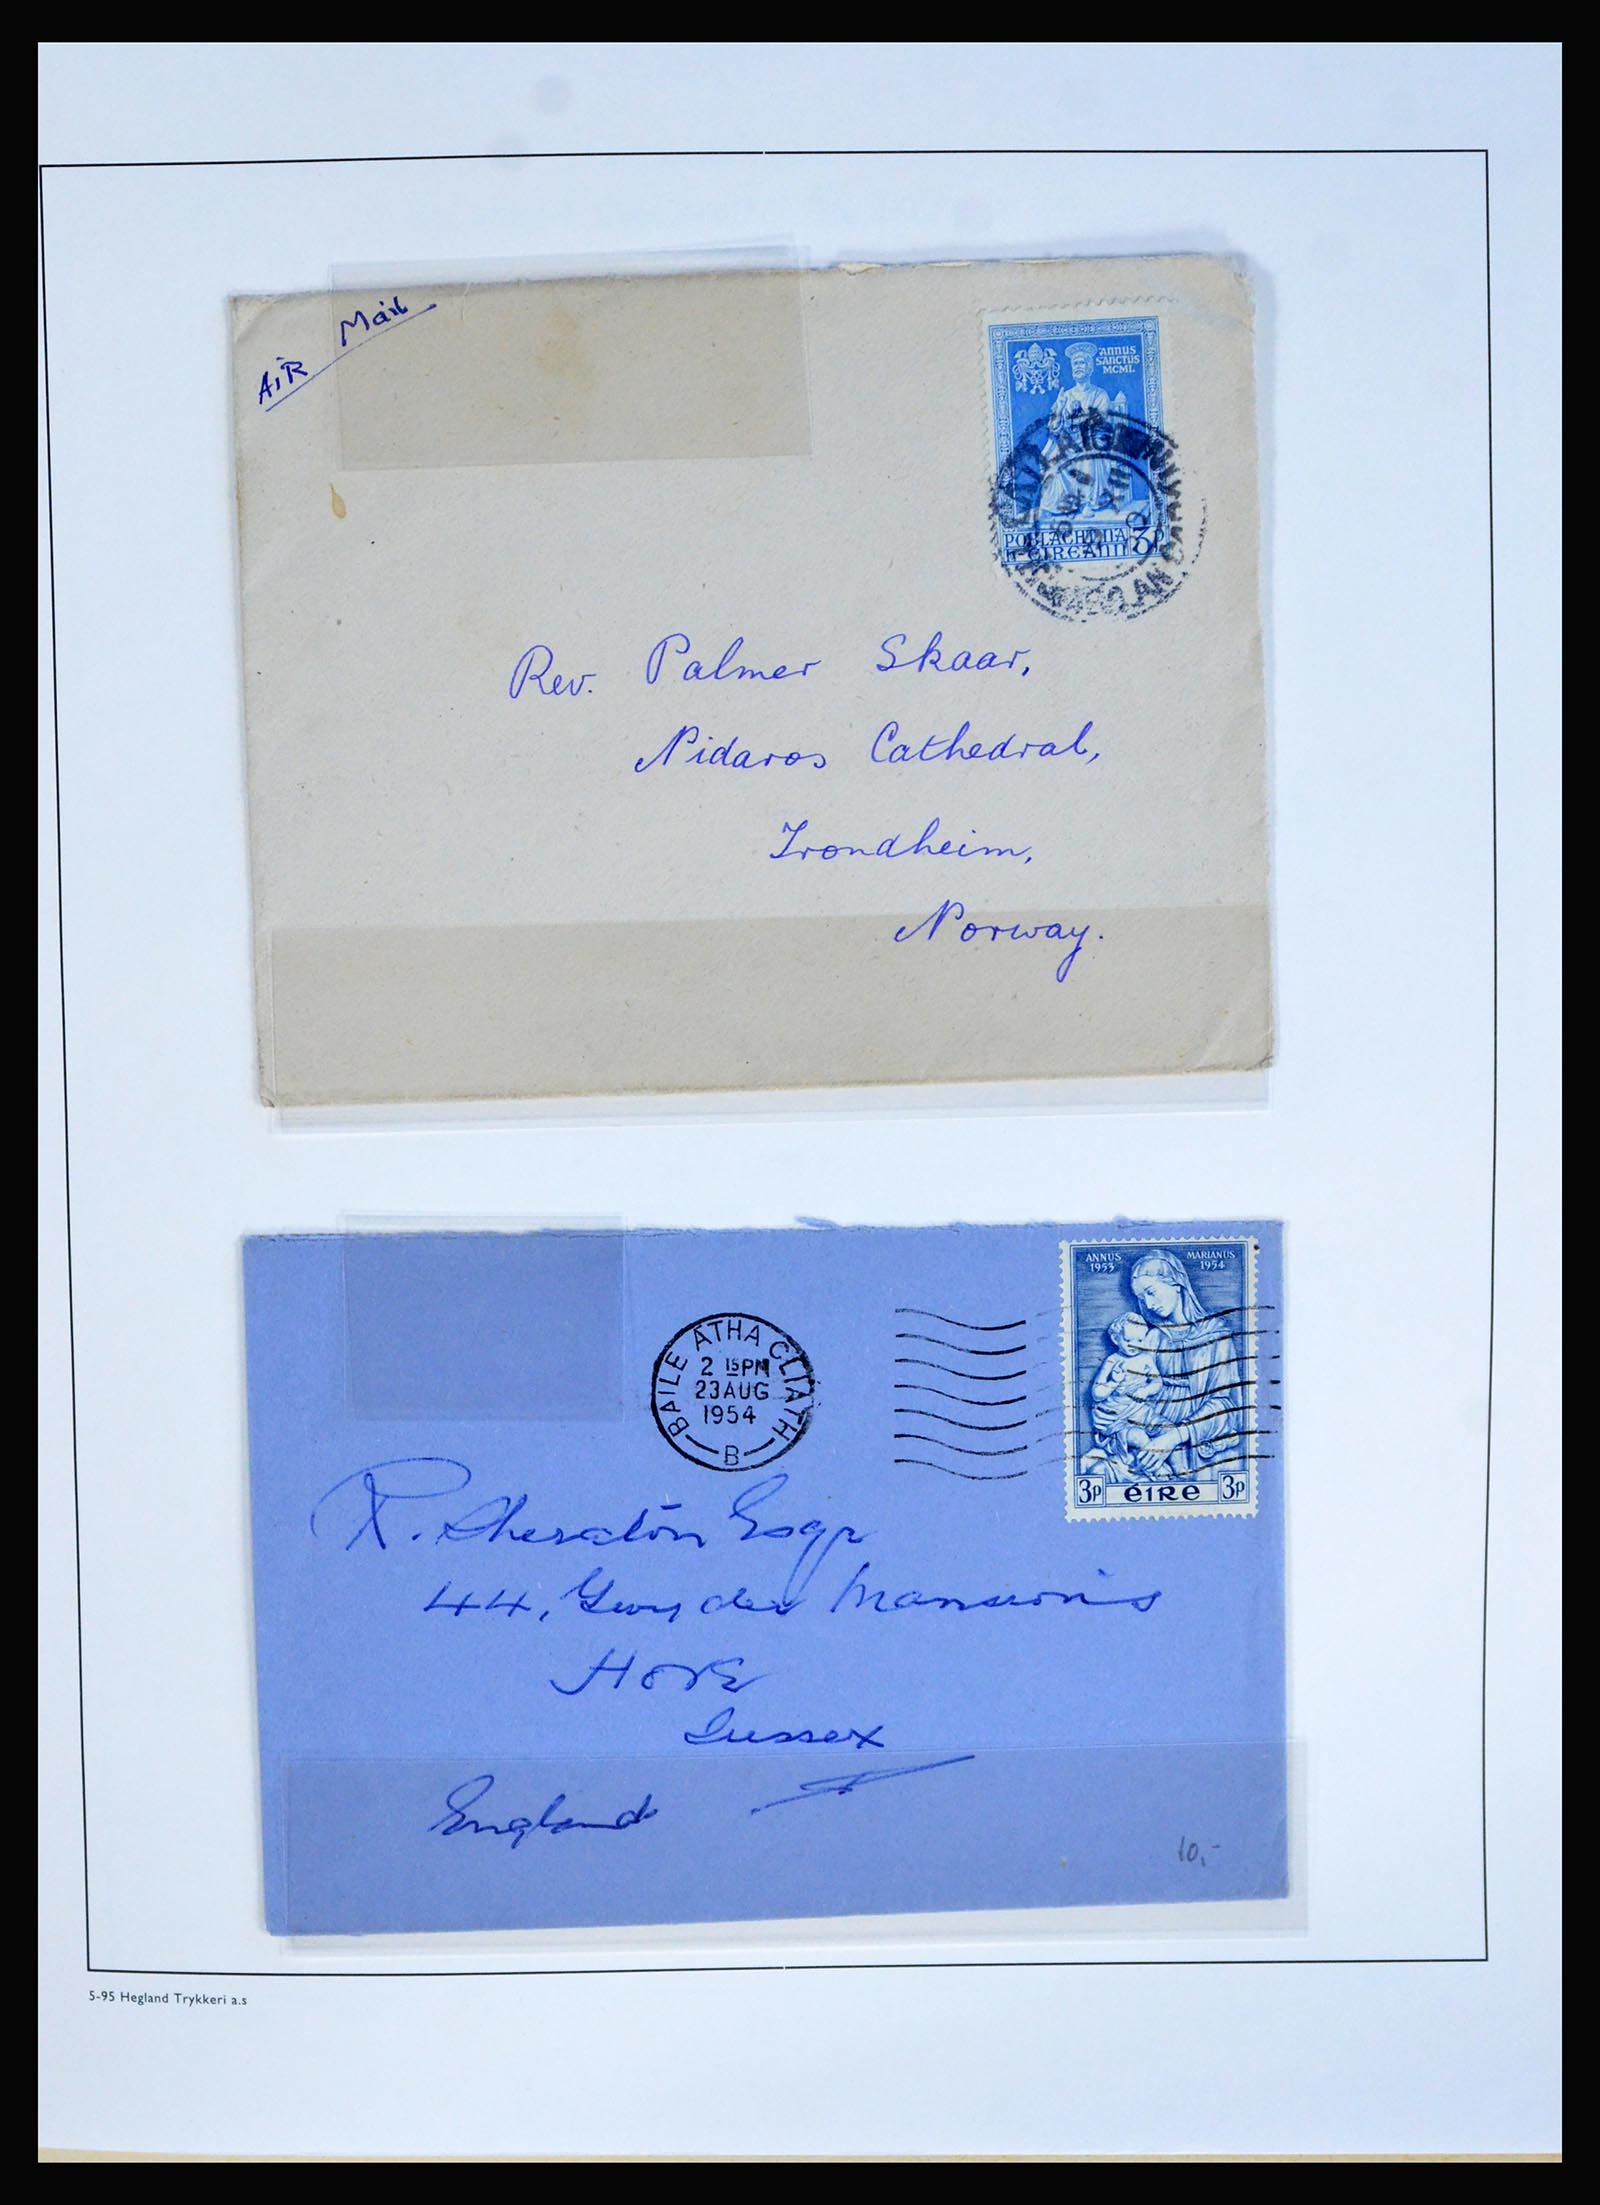 AIR Mail
ANNUS
SANCTUS
MCML
POBLACHT NA
h-ÉIREANN 3P
Rev. Palmer Skaar,
Nidaros Cathedral,
Trondheim,
Norway.
ANNUS
1953
MARIANUS
1954
3p ÉIRE 3p
BAILE ÁTHA CLIATH
2 15PM
23 AUG
1954
B
R. Sheraton Esqr
44, Gwyder Mansions
HOVE
Sussex
England
10,-
5-95 Hegland Trykkeri a.s